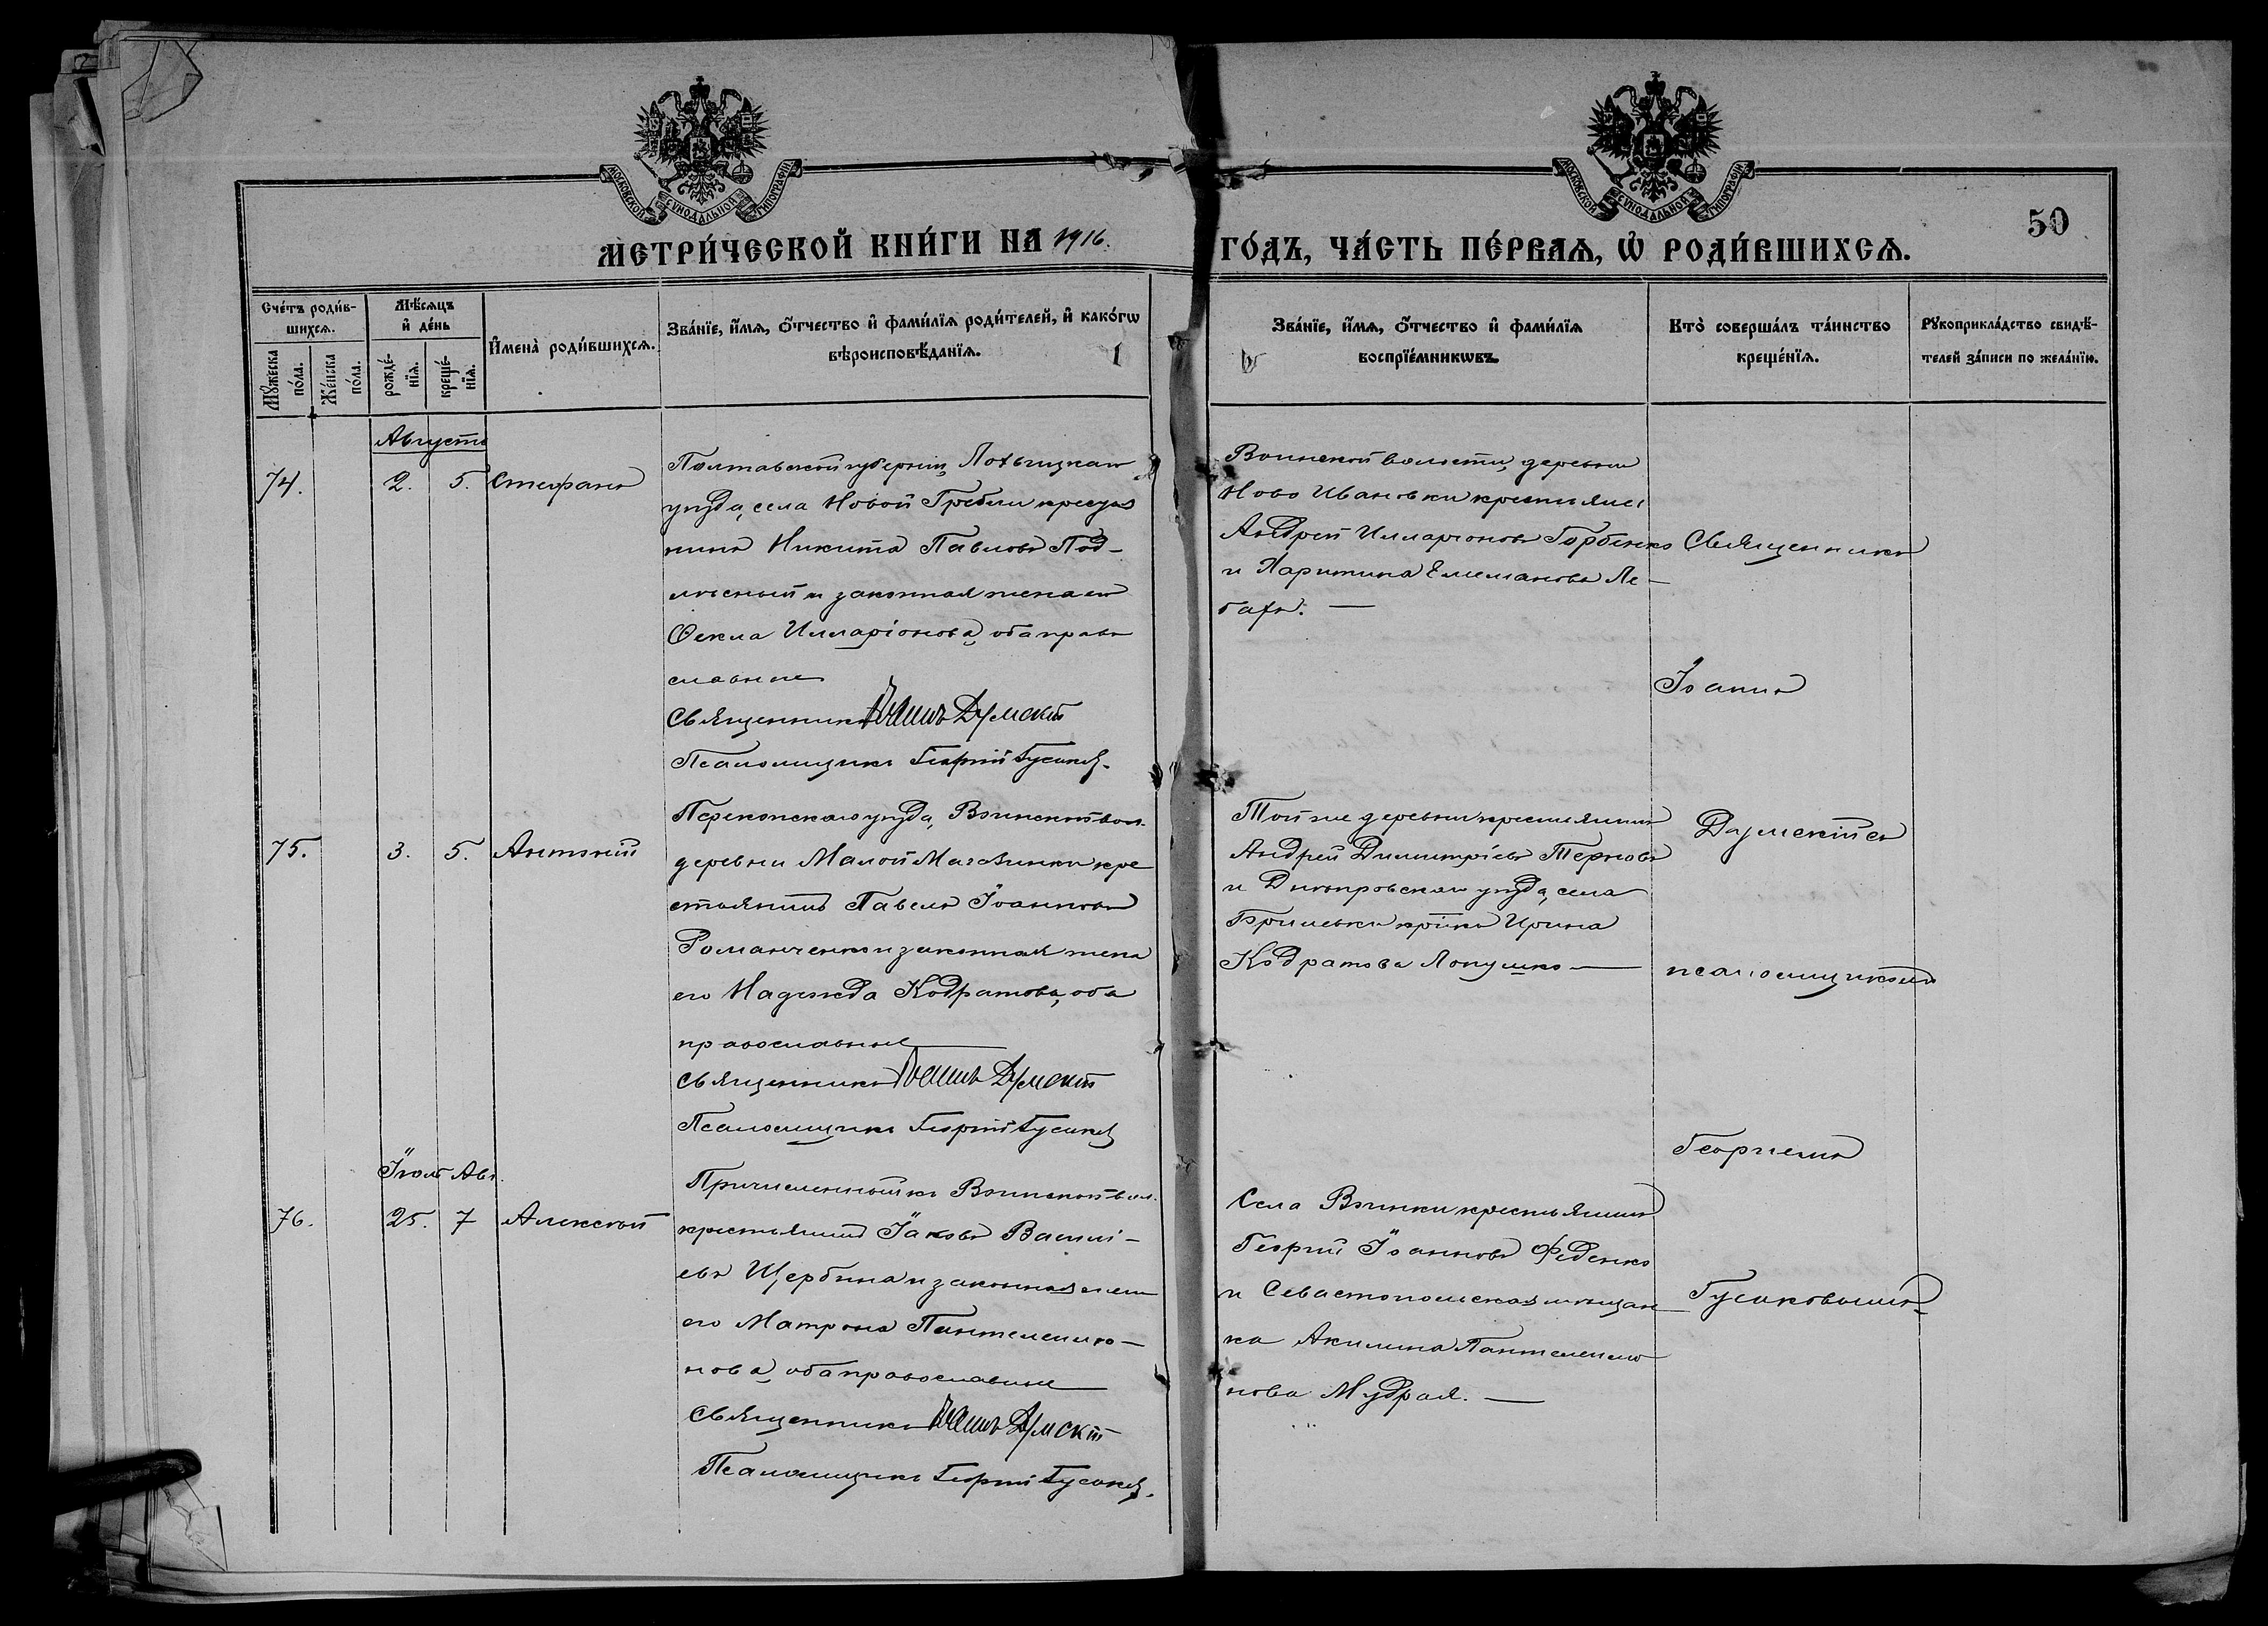 МОСКОВСКОЙ СѴНОДАЛЬНОЙ ТИПОГРАФІИ
МОСКОВСКОЙ СѴНОДАЛЬНОЙ ТИПОГРАФІИ
50
МЕТРИ́ЧЕСКОЙ КНИ́ГИ НА 1916. ГО́ДЪ, ЧА́СТЬ ПЕ́РВАѦ, Ѡ҆ РОДИ́ВШИХСѦ.
Сче́тъ роди́в-
шихсѧ.
Мꙋ́жеска
по́ла.
Же́нска
по́ла.
Мѣ́сѧцъ
и҆ де́нь
рожде́-
нїѧ.
креще́-
нїѧ.
И҆мена̀ роди́вшихсѧ.
Зва́нїе, и҆́мѧ, ѻ҆́тчество и҆ фами́лїѧ роди́телей, и҆ како́гѡ
вѣроисповѣ́данїѧ.
Зва́нїе, и҆́мѧ, ѻ҆́тчество и҆ фами́лїѧ
воспрїе́мникѡвъ.
Кто̀ соверша́лъ та́инство
креще́нїѧ.
Рꙋкоприкла́дство свидѣ́-
телей за́писи по жела́нїю.
Августъ
74.
2.
5.
Стефанъ
Полтавской губерніи, Лохвицкаго
уѣзда, села Новой Гребли крестья
нинъ Никита Павловъ Под-
лѣсный и законная жена его
Ѳекла Илларіонова, оба право
славные
Священникъ Іоаннъ Думскій
Псаломщикъ Георгій Гусаковъ.
Воинской волости, деревни
Ново Ивановки крестьянинъ
Андрей Илларіоновъ Горбенко
и Харитина Емеліанова Ле-
бахъ. —
75.
3.
5.
Антоній
Перекопскаго уѣзда, Воинской вол.
деревни Малой Магазинки кре
стьянинъ Павелъ Іоанновъ
Романченко и законная жена
его Надежда Кодратова, оба
православные
Священникъ Іоаннъ Думскій
Псаломщикъ Георгій Гусаковъ
Той же деревни крестьянинъ
Андрей Димитріевъ Терновъ
и Днѣпровскаго уѣзда, села
Брилевки кр-ка Ирина
Кодратова Лопушко —
Іюль Авг.
76.
25.
7
Алексій
Причисленный къ Воинской вол.
крестьянинъ Іаковъ Василі-
евъ Щербина и законная жена
его Матрона Пантелеимо-
нова, оба православные
Священникъ Іоаннъ Думскій
Псаломщикъ Георгій Гусаковъ.
Села Воинки крестьянинъ
Георгій Іоанновъ Феденко
и Севастопольская мѣщан-
ка Акилина Пантелеимо
нова Мудрая. —
Священникъ
Іоаннъ
Думскій съ
псаломщикомъ
Георгіемъ
Гусаковымъ.